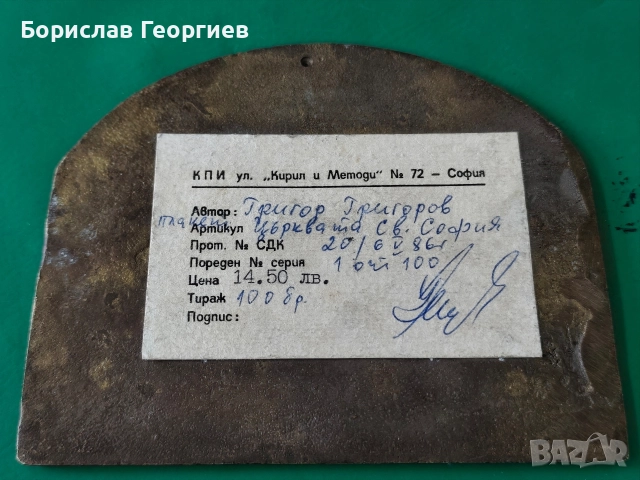 Борислав Георгиев
КПИ ул. „Кирил и Методи" № 72 – София
Автор: Григор Григоров
плакет
Артикул Църквата Св. София
Прот. № СДК 20/6 V 86г
Пореден № серия 1 от 100
Цена 14.50 лв.
Тираж 100 бр.
Подпис:
BAZAR